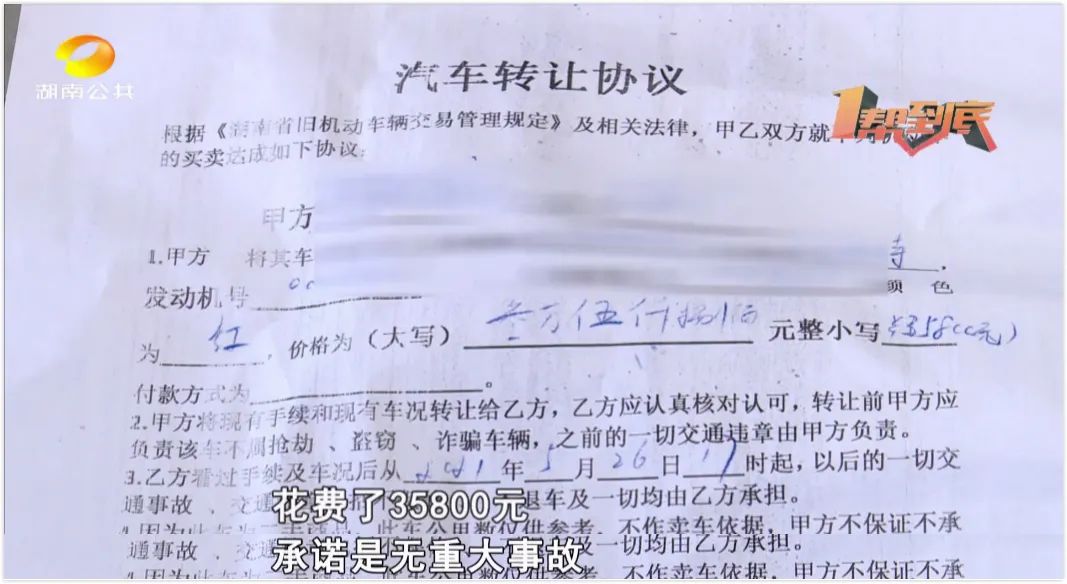 湖南公共
1帮到底
汽车转让协议
根据《湖南省旧机动车辆交易管理规定》及相关法律，甲乙双方就
的买卖达成如下协议：
甲方
1.甲方 将其车
发动机号 颜 色
为 红 ，价格为（大写）叁万伍仟捌佰 元整小写 35800元
付款方式为 。
2.甲方将现有手续和现有车况转让给乙方，乙方应认真核对认可，转让前甲方应
负责该车不属抢劫 、盗窃 、诈骗车辆，之前的一切交通违章由甲方负责。
3.乙方看过手续及车况后从 2021 年 5 月 26 日 17 时起，以后的一切交
通事故 、交通 退车及一切均由乙方承担。
花费了35800元
此车公里数仅供参考，不作卖车依据，甲方不保证不承
通事故 、交通 及一切均由乙方承担。
承诺是无重大事故
不作卖车依据，甲方不保证不承